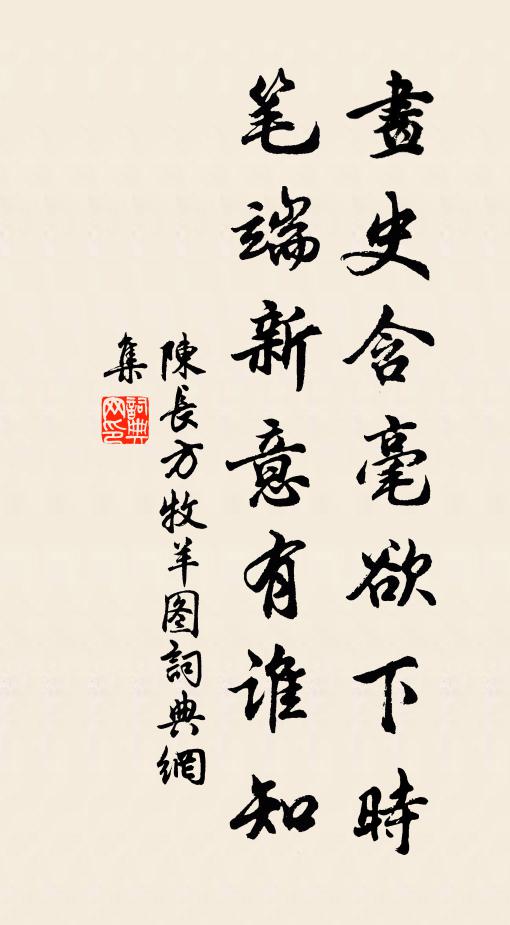 畫史含毫欲下時
笔端新意有谁知
陳長方牧羊图詞典網
集
詞典
网印